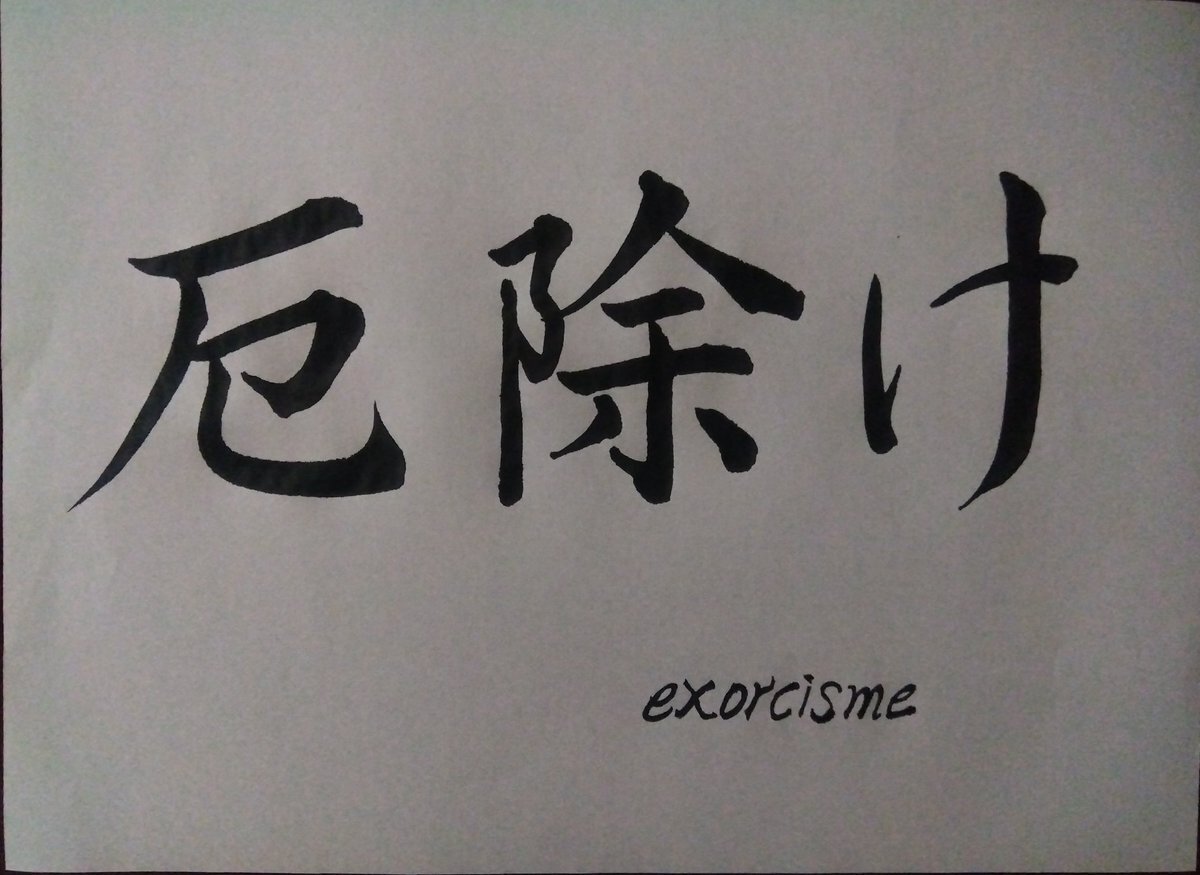 厄除け
exorcisme